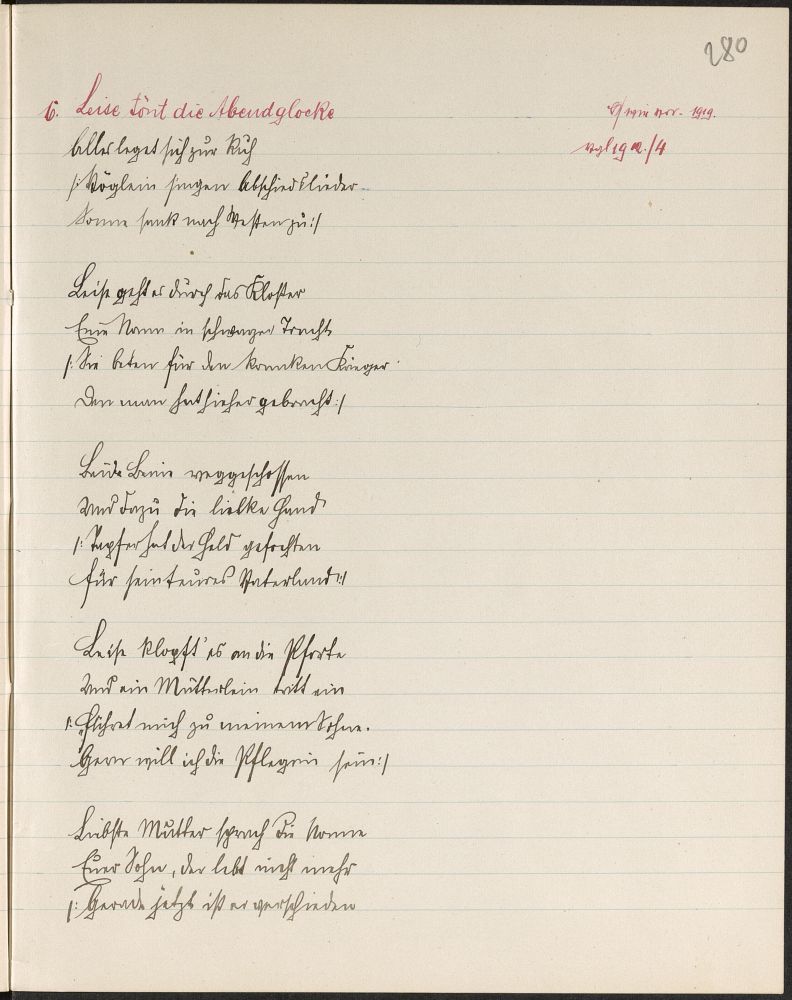 280
6. Leise tönt die Abendglocke
wie vor. 1919.
vgl 19 a./4
Alles leget sich zur Ruh
/: Vöglein singen Abschiedslieder
Sonne sank nach Westen zu :/
Leise geht es durch das Kloster
Eine Nonn in schwarzer Tracht
/: Sie beten für den kranken Krieger
Den man hat hieher gebracht :/
Beide Beine weggeschossen
Und dazu die linke Hand
/: Tapfer hat der Held gefochten
Für sein teures Vaterland :/
Leise klopft' es an die Pforte
Und ein Mütterlein tritt ein
/: "Führet mich zu meinem Sohne.
Gern will ich die Pflegrin sein :/
Liebste Mutter sprach die Nonne
Euer Sohn, der lebt nicht mehr
/: Gerade jetzt ist er verschieden